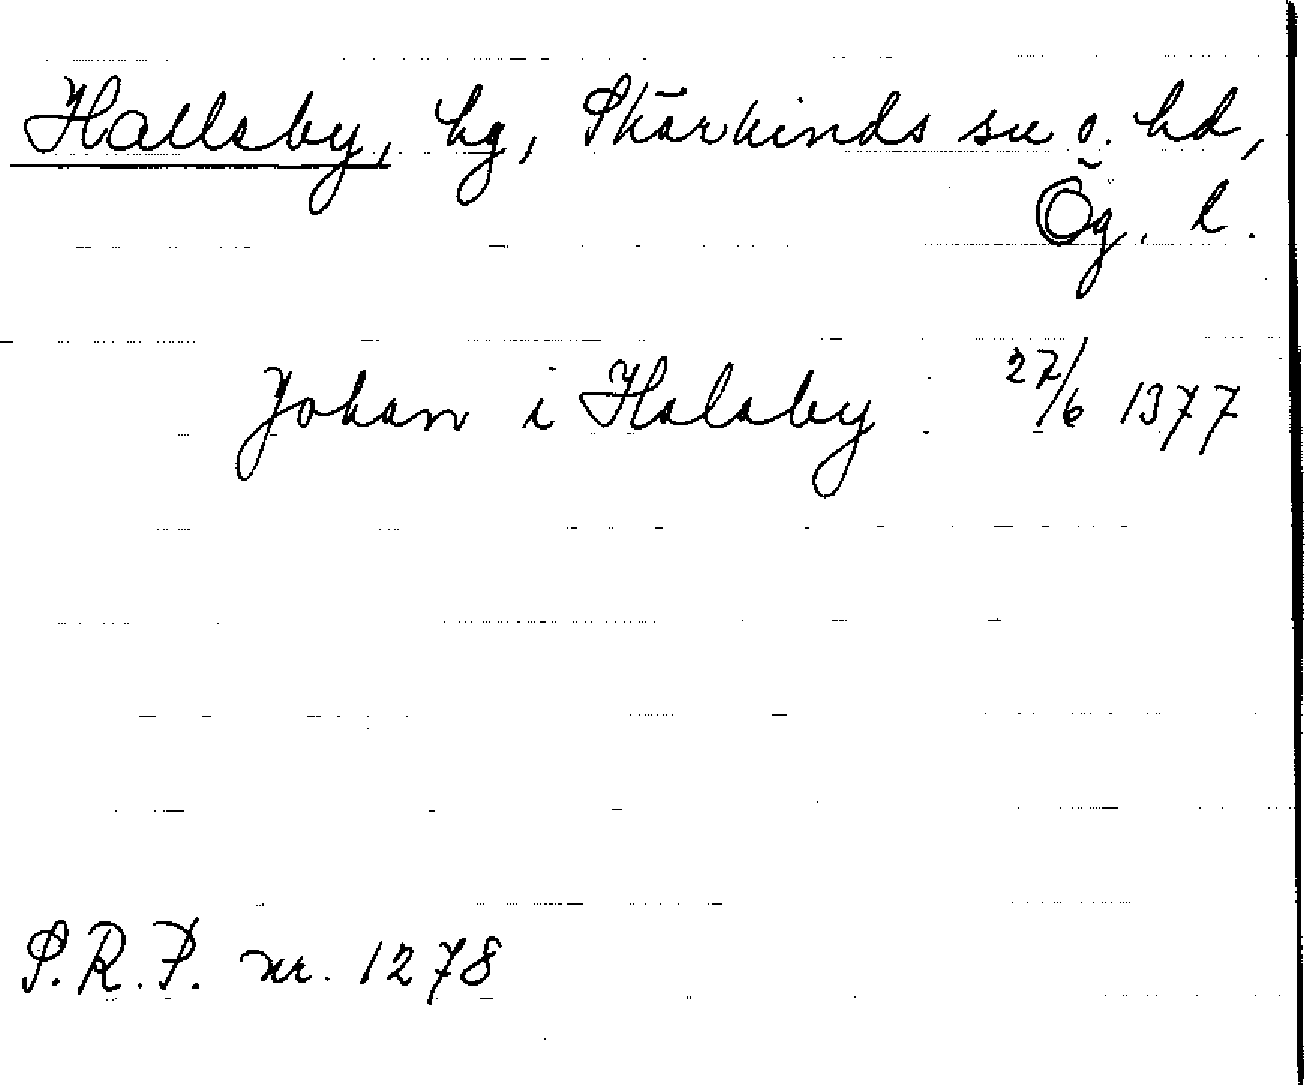 Hallsby, hg, Skärkinds sn o. hd,
Ög. l.
Johan i Halsby 27/6 1377
S.R.P. nr. 1278